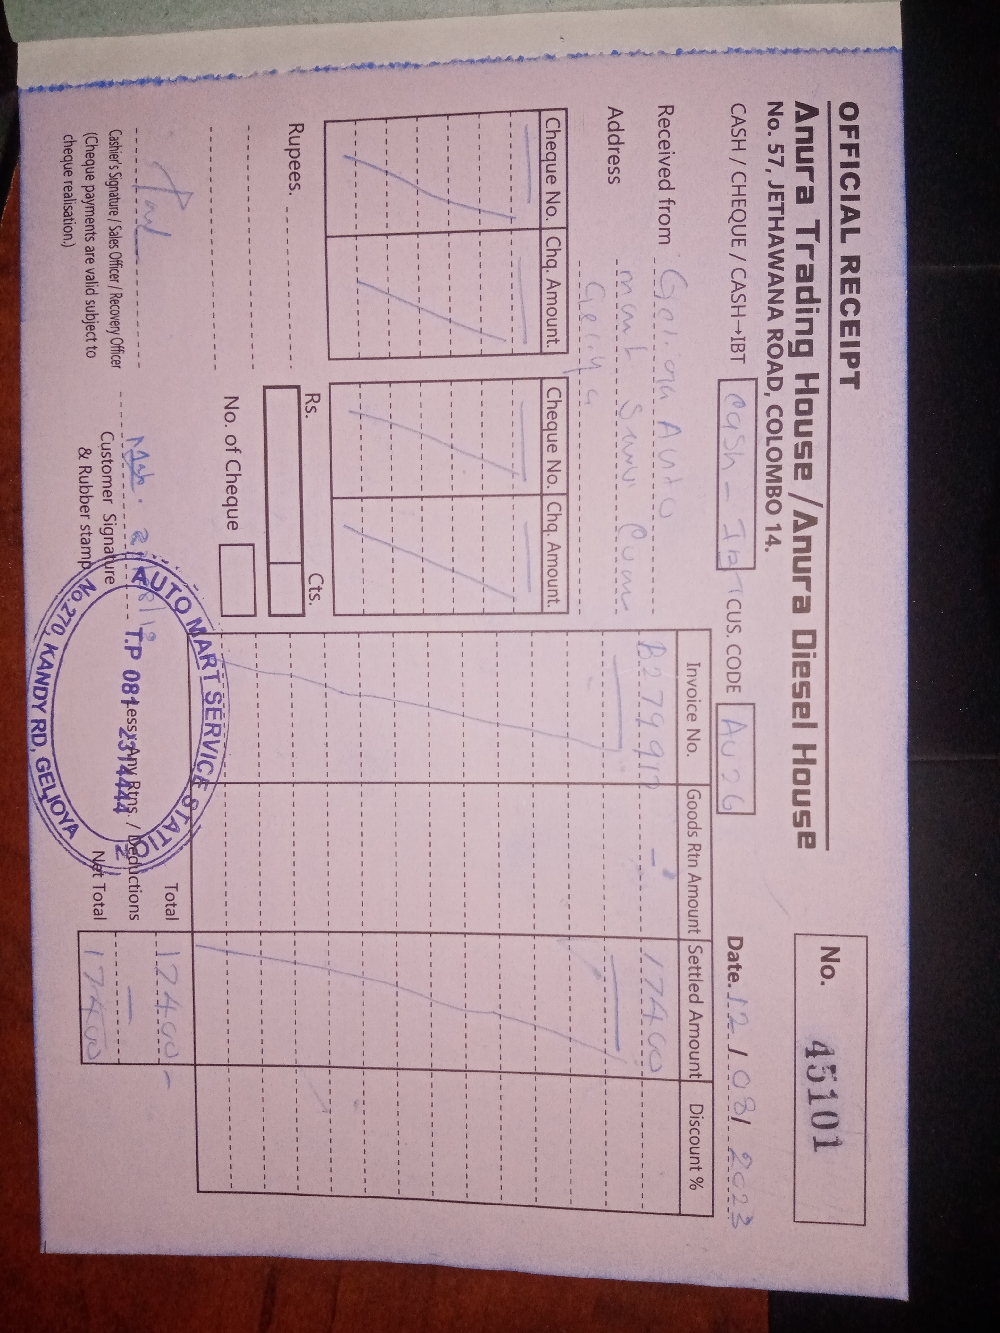 OFFICIAL RECEIPT
Anura Trading House / Anura Diesel House
No. 57, JETHAWANA ROAD, COLOMBO 14.
No. 45101
CASH / CHEQUE / CASH→IBT Cash - IBT CUS. CODE AU26 Date. 12 / 08 / 2023
Received from Gelioya Auto
Address Mart
Geliya
Cheque No. Chq. Amount. Cheque No. Chq. Amount.
Invoice No. Goods Rtn Amount Settled Amount Discount %
B279912 - 17400
Rupees.
Rs. Cts.
No. of Cheque
Total 17400 -
Less: Any Rtns. / Deductions -
Net Total 17400
Cashier's Signature / Sales Officer / Recovery Officer
(Cheque payments are valid subject to
cheque realisation.)
Customer Signature
& Rubber stamp
AUTO MART SERVICE STATION
T.P 081-2314444
No.270, KANDY RD, GELIOYA